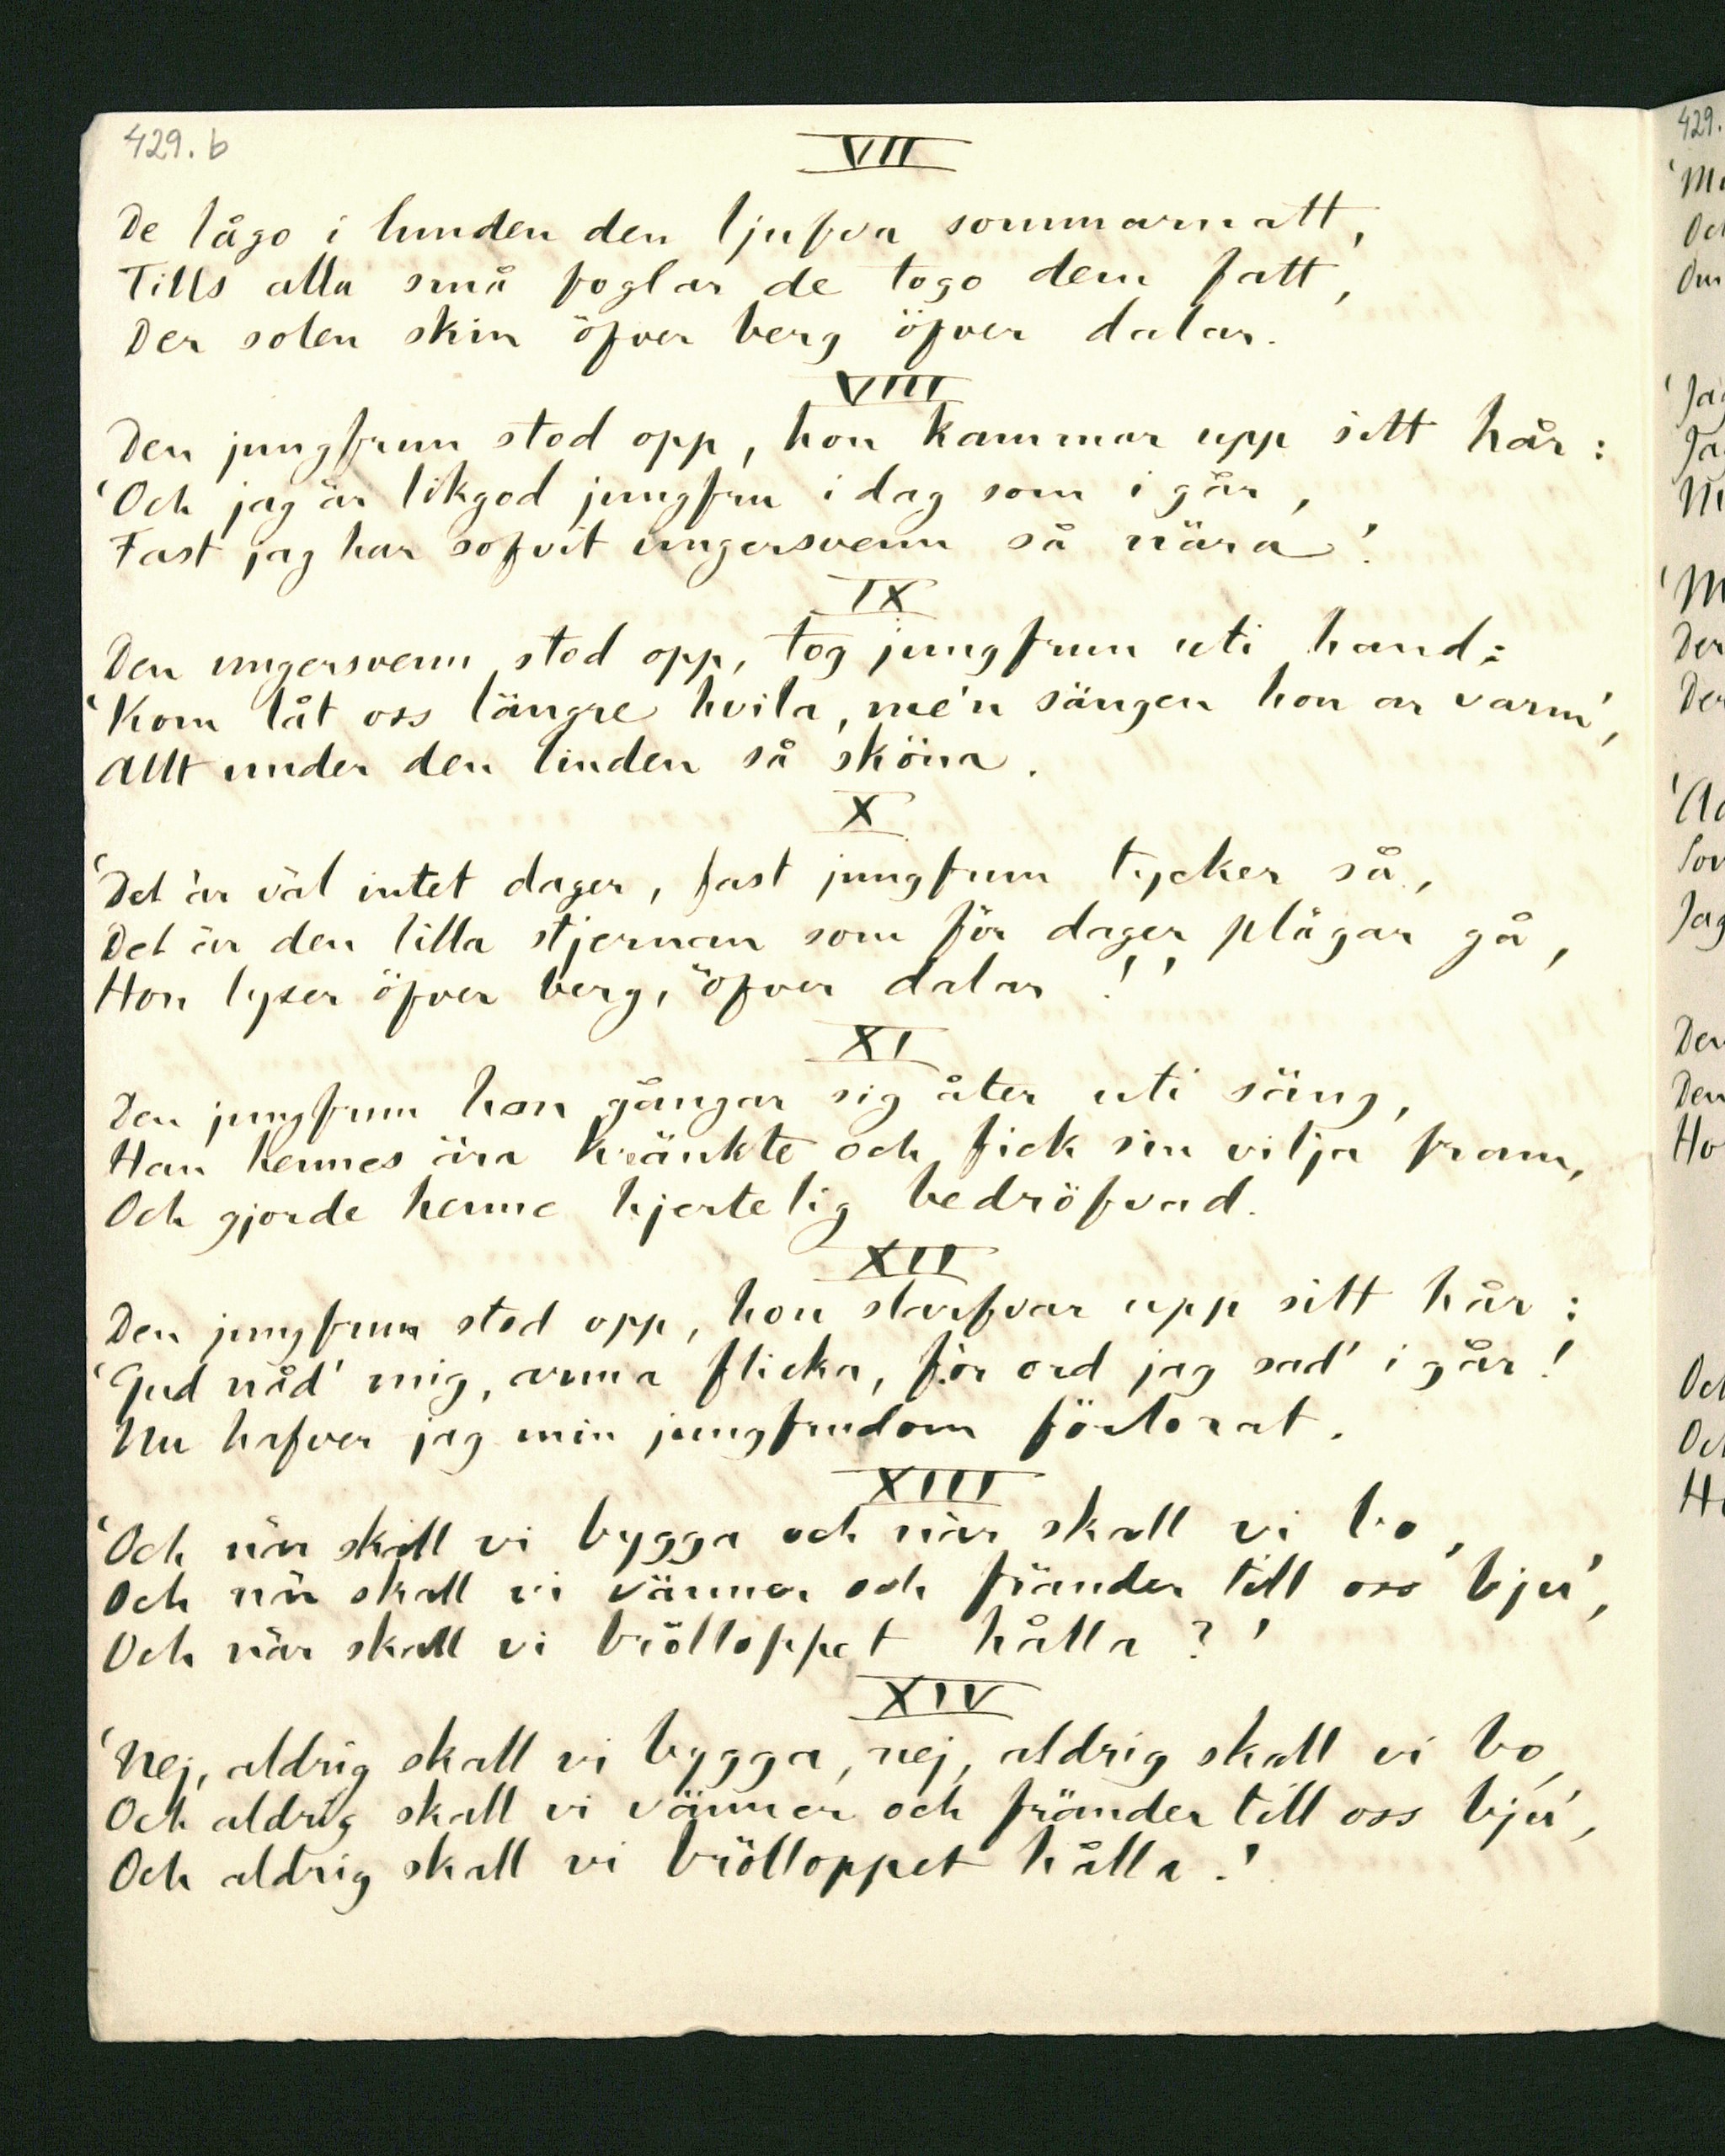 429. b
VII
De lågo i lunden den ljufva sommarnatt,
Tills alla små foglar de togo dem fatt,
Der solen skin öfver berg öfver dalar.
VIII
Den jungfrun stod opp, hon kammar upp sitt hår:
'Och jag är likgod jungfru i dag som i går,
Fast jag har sofvit ungersvenn så nära!'
IX
Den ungersvenn stod opp, tog jungfrun uti hand:
'Kom låt oss längre hvila, me'n sängen hon är varm',
Allt under den linden så sköna.
X
'Det är väl intet dager, fast jungfrun tycker så,
Det är den lilla stjernan som för dager plägar gå,
Hon lyser öfver berg, öfver dalar!'
XI
Den jungfrun hon gångar sig åter uti säng,
Han hennes ära kränkte och fick sin vilja fram,
Och gjorde henne hjertelig bedröfvad.
XII
Den jungfrun stod opp, hon slarfvar upp sitt hår:
'Gud nåd' mig, arma flicka, för ord jag sad' i går!
Nu hafver jag min jungfrudom förlorat.
XIII
'Och när skall vi bygga och när skall vi bo,
Och när skall vi vänner och fränder till oss bju',
Och när skall vi brölloppet hålla?'
XIV
'Nej, aldrig skall vi bygga, nej, aldrig skall vi bo,
Och aldrig skall vi vänner och fränder till oss bju',
Och aldrig skall vi brölloppet hålla.'
429.